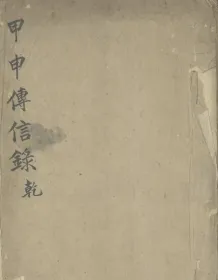 甲申傳信錄
乾